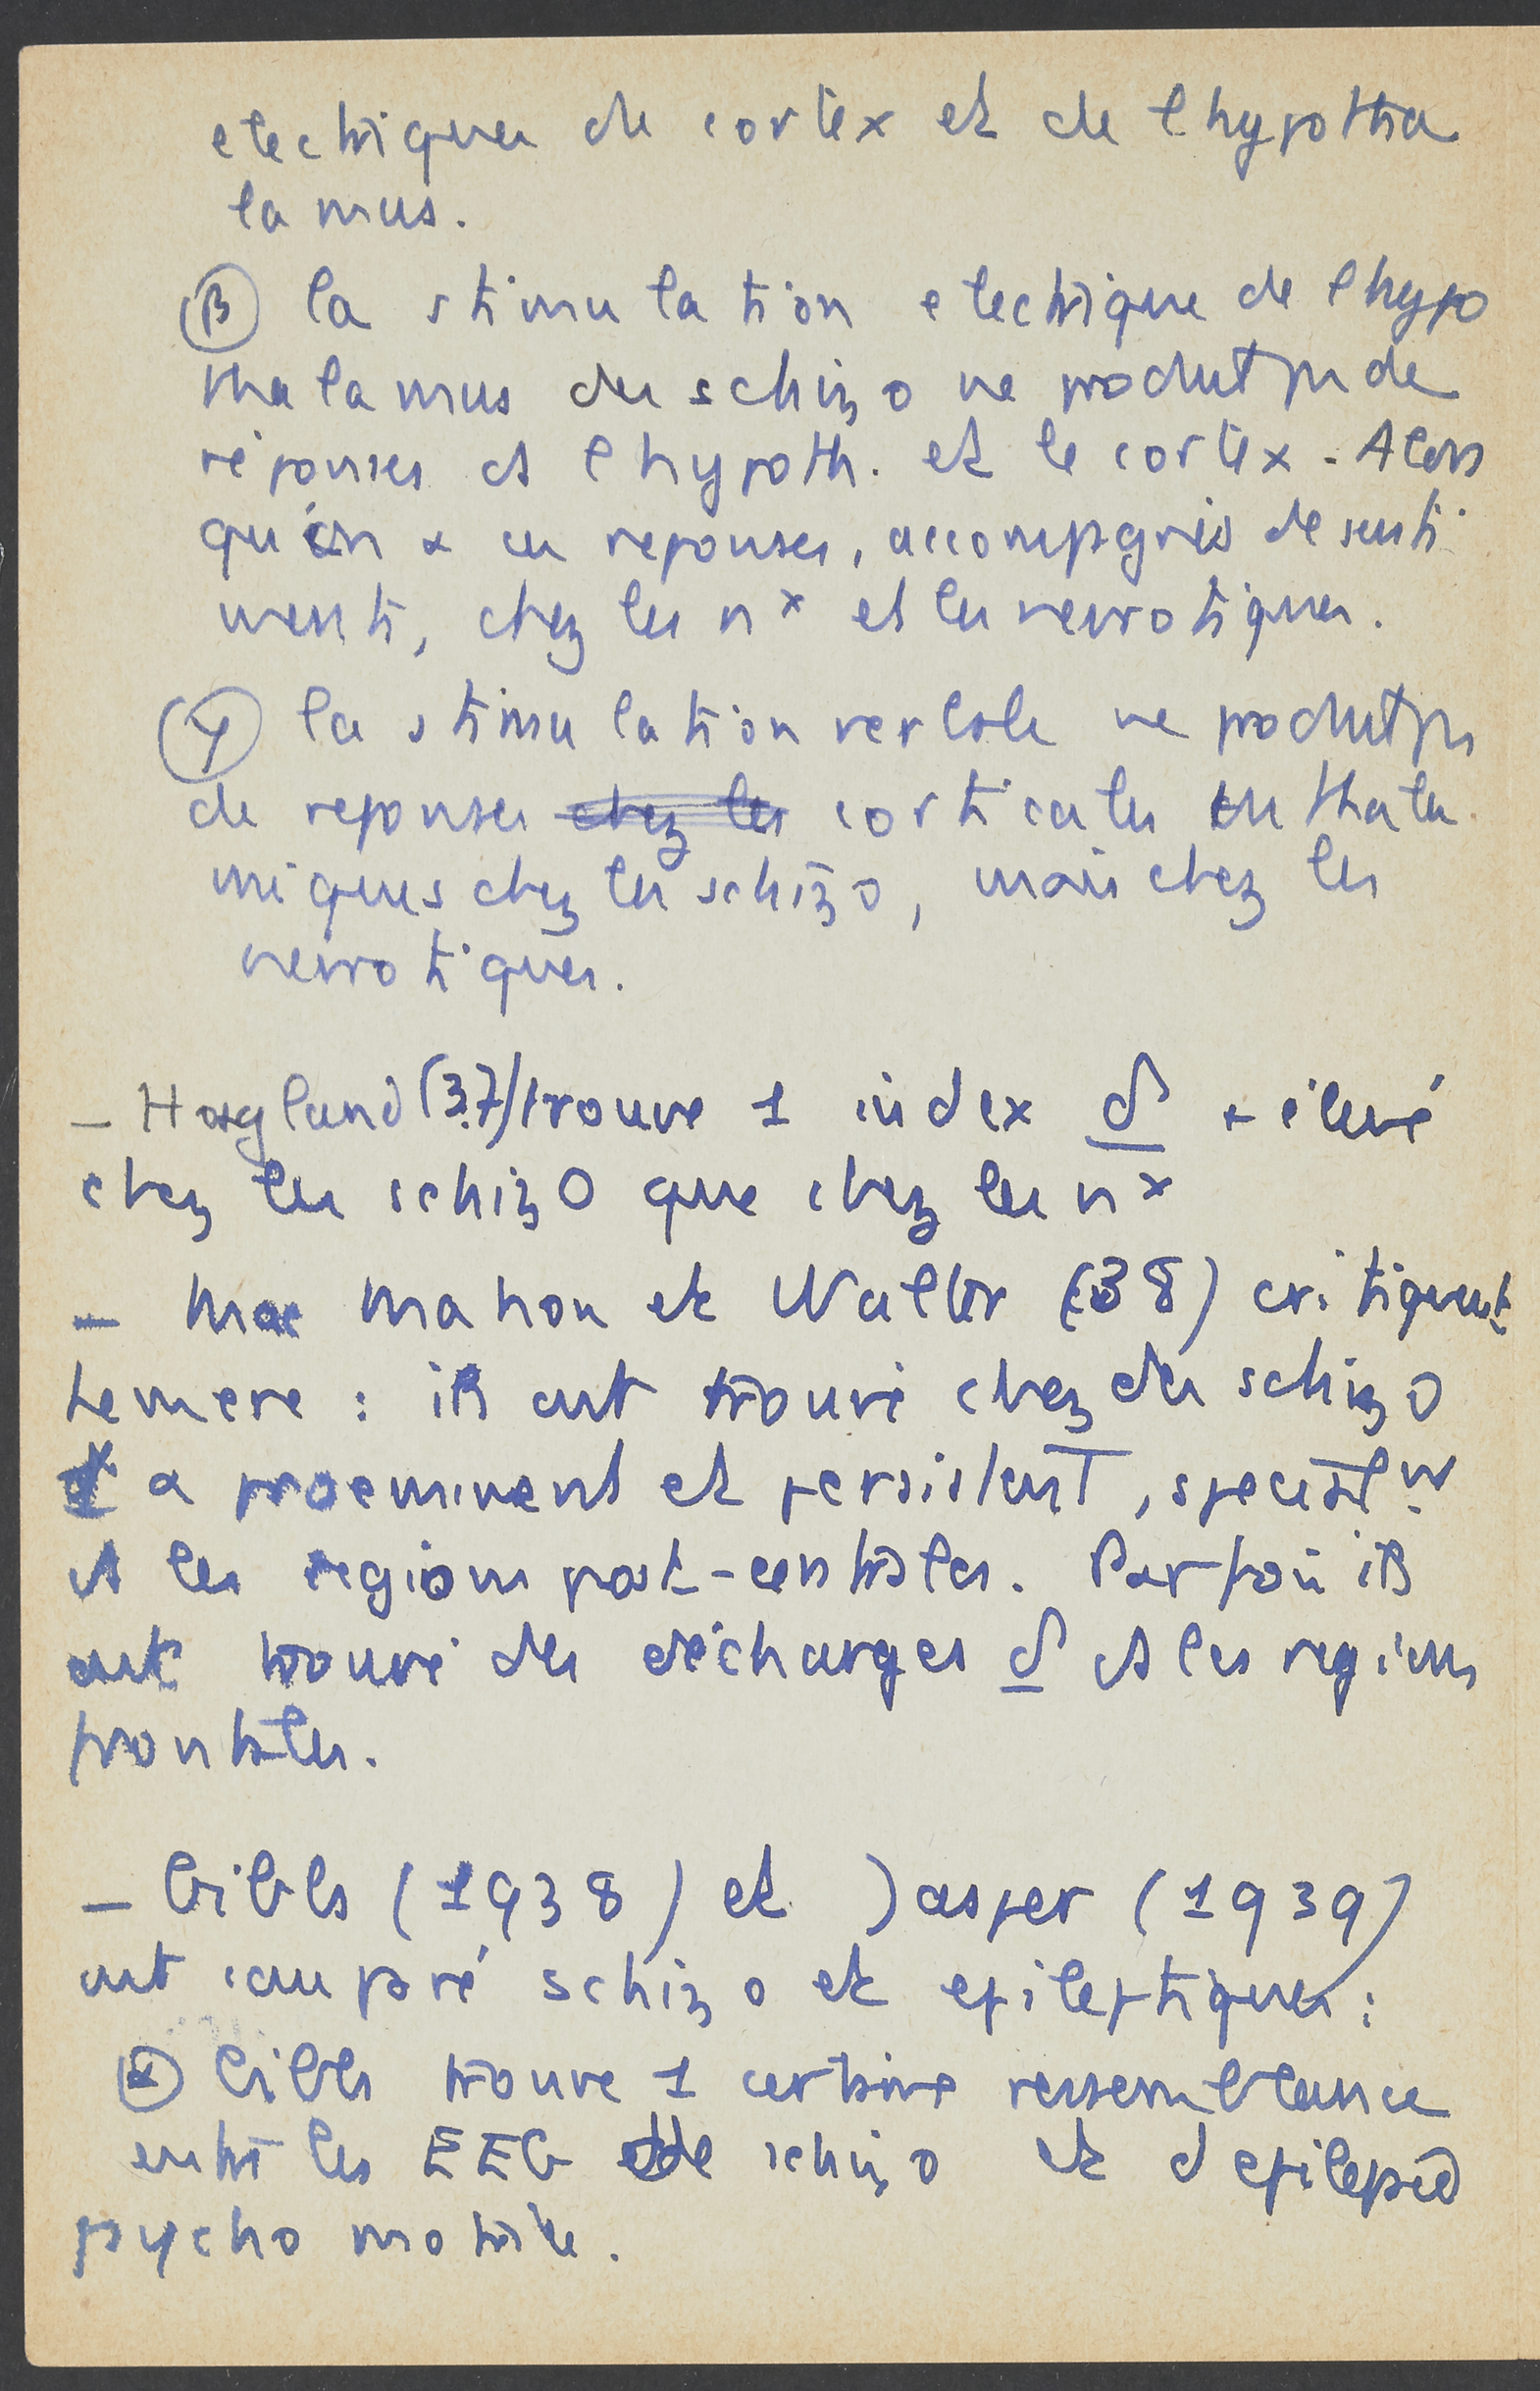 electriques du cortex et de l hypotha
lamus.
(β) la stimulation electrique de l hypo
thalamus des schizo ne produit pas de
réponses ds l hypoth. et le cortex. Alors
qu'on a eu reponses, accompagnées de senti
ments, chez les nx et les nevrotiques.
(γ) la stimulation verbale ne produit pas
de reponses chez les corticales ou thala
miques chez les schizo, mais chez les
nevrotiques.
– Hoagland (37) trouve 1 index δ + élevé
chez les schizo que chez les nx
– Mac Mahon et Walter (38) critiquent
Lemere : ils ont trouvé chez des schizo
α proeminent et persistant, specialt
ds les regions post-centrales. Parfois ils
ont trouvé des décharges δ ds les regions
frontales.
– Gibbs (1938) et Jasper (1939)
ont comparé schizo et epileptiques :
(α) Gibbs trouve 1 certaine ressemblance
entre les EEG de schizo et d epilepsie
psycho motrice.